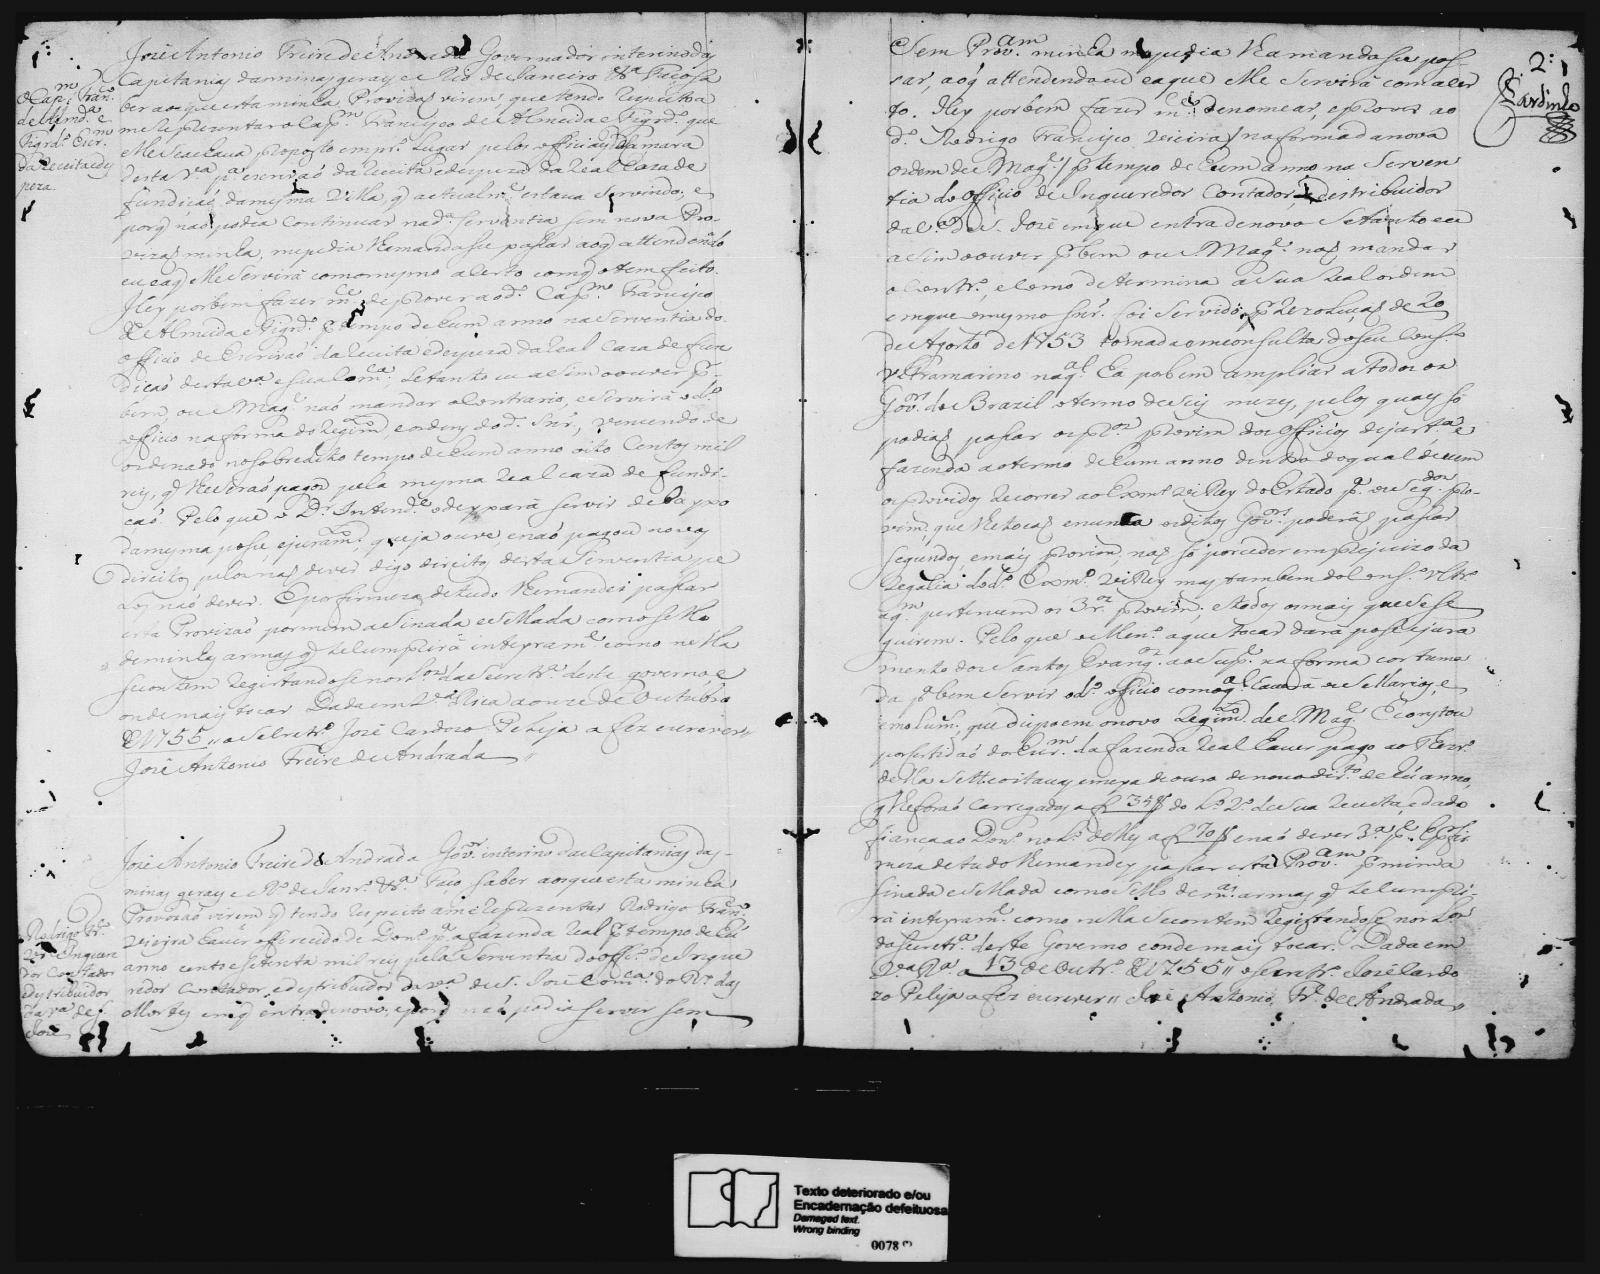 O Cap.m Fran.co
de Alm.da e
Figrd.o Escr.m
da receita e des
peza
Jozé Antonio Freire de Andrada Governador interino das
Capitanias das minas geraes e Rio de Janeiro &.a Faço sa
ber aos que esta minha Provizaõ virem que tendo respeito a
me reprezentar o Cap.m Francisco de Almeida e Figrd.o que
elle se achava proposto em pr.o lugar pelos officiaes da Camara
desta V.a p.a escrivaõ da receita e despeza da Real Caza de
fundiçaõ da mesma Villa, q actualm.te estava servindo, e
porq naõ podia continuar na d.a serventia sem nova Pro-
vizaõ minha, me pedia lhe mandasse passar ao q attendendo
eu e a q elle servirá com o mesmo acerto com q o tem feito.
Hey por bem fazer m.ce de prover ao d.o Cap.m Francisco
de Almeida e Figrd.o p tempo de hum anno na serventia do
officio de Escrivaõ da receita e despeza da Real Caza de fun
diçaõ desta V.a e sua Com.ca se tanto eu assim o ouver p.r
bem, ou S Mag.e naõ mandar o contrario, e servirá o d.o
officio na forma do Regim.to, e ordens do d.o Snr, vencendo de
ordenado no sobredito tempo de hum anno oito centos mil
reis, q lhe seraõ pagos pela mesma Real caza de fundi-
çaõ. Pelo que o D.r Intend.e o deixará servir debaixo
da mesma posse, e juram.to, q ja ouve, e naõ pagou novos
direitos, pelos naõ dever digo direitos desta serventia pe
los naõ dever. E por firmeza de tudo lhe mandei passar
esta Provizaõ por mim asinada e sellada com o sello
de minhas armas q se cumprirá inteyram.te como nella
se contem registandose nos L.os da Secretr.a deste governo, e
onde mais tocar Dada em V.a Rica a onze de Outubro
de 1755 // o Secretr.o Jozé Cardozo Peleja a fez escrever //
Jozé Antonio Freire de Andrada //
Rodrigo Fr.co
Vr.a Inquere
dor Contador
e destribuidor
da V.a de S.
Jozé
Jozé Antonio Freire de Andrada Gov.or interino das Capitanias das
minas geraes e R.o de Janr.o &.a Faço saber aos que esta minha
Provizaõ virem q tendo respeito a me reprezentar Rodrigo Fran.co
Vieyra haver offerecido de Don.o p.a a fazenda Real p tempo de hũ
anno cento e setenta mil reis pela serventia do off.o de Inque
redor Contador, e destribuidor da V.a de S. Jozé Com.ca do R.o das
Mortes em q entra de novo, e porq naõ podia servir sem
2
Sardinha
Sem Prov.am minha me pedia lha mandasse pas-
sar, ao q attendendo eu e a que elle servirá com acer
to. Hey por bem fazer m.ce de nomear, e prover ao
d.o Rodrigo Francisco Vieira / na forma da nova
ordem de S Mag.e / p tempo de hum anno na serven
tia do officio de Inqueredor Contador e destribuidor
da V.a de S. Jozé em que entra de novo se tanto eu
assim o ouver p.r bem ou S. Mag.e naõ mandar
o contr.o, e como determina a sua real ordem
em que o mesmo Snr. foi servido p rezoluçaõ de 20
de Agosto de 1753 tomada em consulta do seu Cons.o
Ultramarino na q.l há por bem ampliar a todos os
Gov.res do Brazil o termo de seis mezes, pelos quaes só
podiaõ passar os pr.os provim.tos dos officios de just.a, e
fazenda ao termo de hum anno dentro do qual devem
os providos recorrer ao Exm.o V.Rey do Estado p.a os seg.dos pro-
vim.tos, que lhe tocaõ e nunca os ditos Gov.res poderáõ passar
segundos, e mais provim.tos, naõ só por ceder em prejuizo da
Regalia do d.o Exm.o V.Rey mas tambem do Cons.o Ultr.o
a q.m pertencem os 3.ros provim.tos, e todos os mais que se se
guirem. Pelo que o Men.o a que tocar dará posse e jura
mento dos Santos Evang.os ao sup.e na forma costuma
da p.a bem servir o d.o officio com o q.l haverá os sellarios, e
emolum.tos, que dispoem o novo Regim.to de S Mag.e E constou
por certidaõ do Escr.m da fazenda Real haver pago ao Thezr.o
della sette oitavas e meya de ouro de novo dir.to de hũ anno,
q lhe foraõ carregados a f 35 do L.o 2.o de sua receita, e dado
fiança ao Don.o no L.o dellas a f 70 e naõ dever 3.a p.te E p fir
meza de tudo lhe mandey passar esta Prov.am p mim a
sinada e sellada com o sello de m.as armas q se cumpri-
rá inteyram.te como nella se contem registandose nos L.os
da Secretr.a deste Governo e onde mais tocar. Dada em
V.a R.a a 13 de Outr.o de 1755 // o Secretr.o Jozé Cardo
zo Peleja a fez escrever // Jozé Antonio Fr.e de Andrada //
Texto deteriorado e/ou
Encadernação defeituosa
Damaged text.
Wrong binding
0078